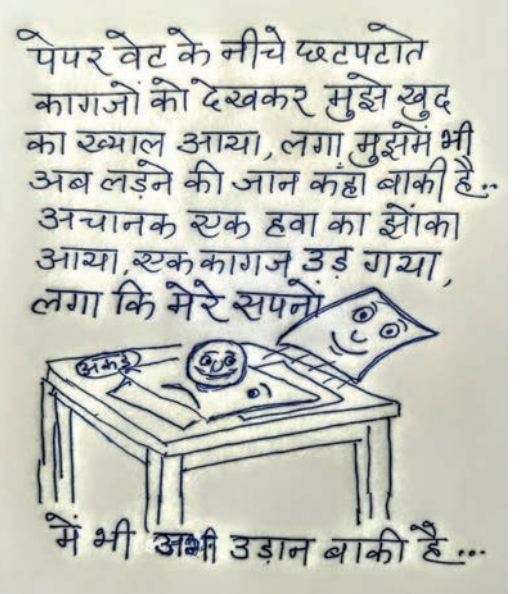 पेपर वेट के नीचे छटपटाते
कागजों को देखकर मुझे खुद
का ख्याल आया, लगा मुझमें भी
अब लड़ने की जान कहाँ बाकी है..
अचानक एक हवा का झोंका
आया, एक कागज उड़ गया,
लगा कि मेरे सपनों
में भी अभी उड़ान बाकी है...